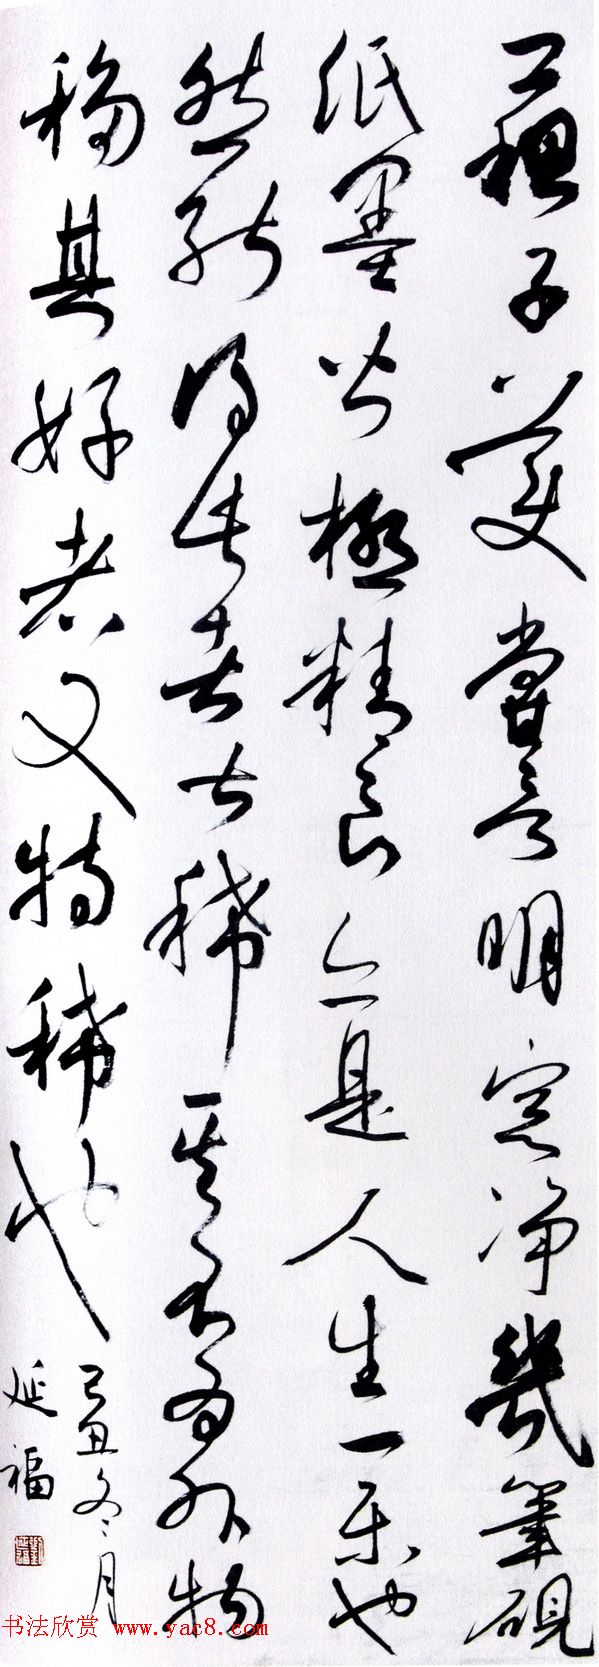 蘇子美嘗言明窓净幾筆硯
紙墨皆極精良亦是人生一樂也
然能得此者甚稀其不為外物
移其好者又特稀也
己丑冬月
延福
书法欣赏 www.yac8.com